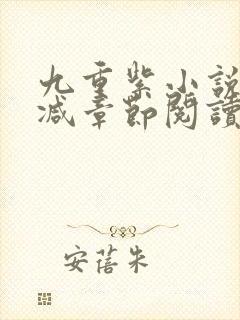 九重紫小說
減章節閱讀
安蓓朱